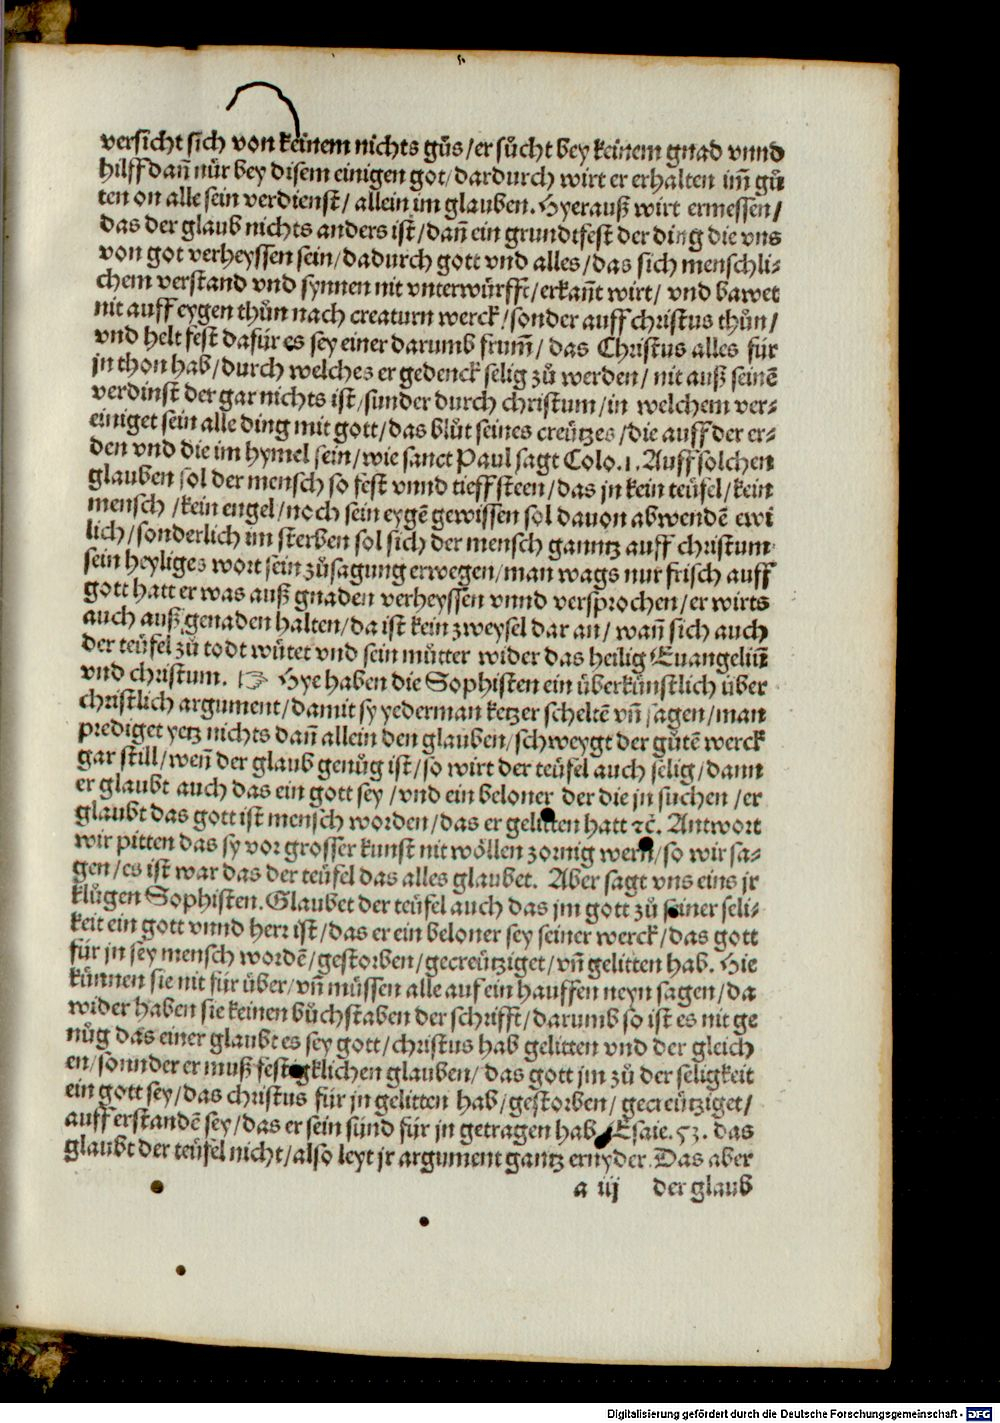 versicht sich von keinem nichts gůs / er sůcht bey keinem gnad vnnd
hilff dañ nůr bey disem einigen got / dardurch wirt er erhalten im̃ gů
ten on alle sein verdienst / allein im glauben. Hyerauß wirt ermessen /
das der glaub nichts anders ist / dañ ein grundtfest der ding die vns
von got verheyssen sein / dadurch gott vnd alles / das sich menschli⸗
chem verstand vnd synnen nit vnterwürfft / erkañt wirt / vnd bawet
nit auff eygen thůn nach creaturn werck / sonder auff christus thůn /
vnd helt fest dafür es sey einer darumb frum̃ / das Christus alles für
jn thon hab / durch welches er gedenck selig zů werden / nit auß seinē
verdinst der gar nichts ist / sunder durch christum / in welchem ver⸗
einiget sein alle ding mit gott / das blůt seines creützes / die auff der er⸗
den vnd die im hymel sein / wie sanct Paul sagt Colo. 1. Auff solchen
glauben sol der mensch so fest vnnd tieff steen / das jn kein teüfel / kein
mensch / kein engel / noch sein eygē gewissen sol dauon abwendē ewi
lich / sonderlich im sterben sol sich der mensch ganntz auff christum
sein heyliges wort sein zůsagung erwegen / man wags nur frisch auff
gott hatt er was auß gnaden verheyssen vnnd versprochen / er wirts
auch auß genaden halten / da ist kein zweysel dar an / wañ sich auch
der teüfel zů todt wütet vnd sein můtter wider das heilig Euangeliū
vnd christum. ☞ Hye haben die Sophisten ein überkünstlich über
christlich argument / damit sy yederman ketzer scheltē vñ sagen / man
prediget yetz nichts dañ allein den glauben / schweygt der gůtē werck
gar still / weñ der glaub genůg ist / so wirt der teüfel auch selig / dann
er glaubt auch das ein gott sey / vnd ein beloner der die jn suchen / er
glaubt das gott ist mensch worden / das er gelitten hatt ⁊c̃. Antwort
wir pitten das sy vor grosser kunst nit wöllen zornig wern / so wir sa⸗
gen / es ist war das der teüfel das alles glaubet. Aber sagt vns eins jr
klůgen Sophisten. Glaubet der teüfel auch das jm gott zů seiner seli⸗
keit ein gott vnnd herr ist / das er ein beloner sey seiner werck / das gott
für jn sey mensch wordē / gestorben / gecreütziget / vñ gelitten hab. Hie
künnen sie nit für über / vñ müssen alle auf ein hauffen neyn sagen / da
wider haben sie keinen bůchstaben der schrifft / darumb so ist es nit ge
nůg das einer glaubt es sey gott / christus hab gelitten vnd der gleich
en / sonnder er muß festigklichen glauben / das gott jm zů der seligkeit
ein gott sey / das christus für jn gelitten hab / gestorben / gecreütziget /
auff erstandē sey / das er sein sünd für jn getragen hab / Esaie. 53. das
glaubt der teüfel nicht / also leyt jr argument gantz ernyder. Das aber
a iij der glaub
Digitalisierung gefördert durch die Deutsche Forschungsgemeinschaft - DFG